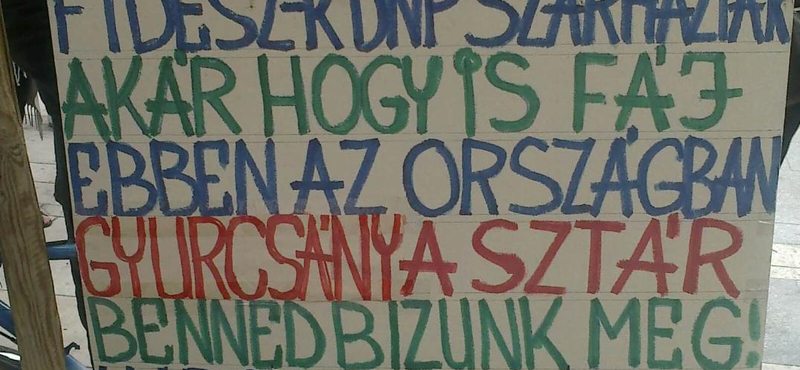 FIDESZ-KDNP SZARHÁZIAK
AKÁR HOGY IS FÁJ
EBBEN AZ ORSZÁGBAN
GYURCSÁNY A SZTÁR
BENNED BIZUNK MEG!